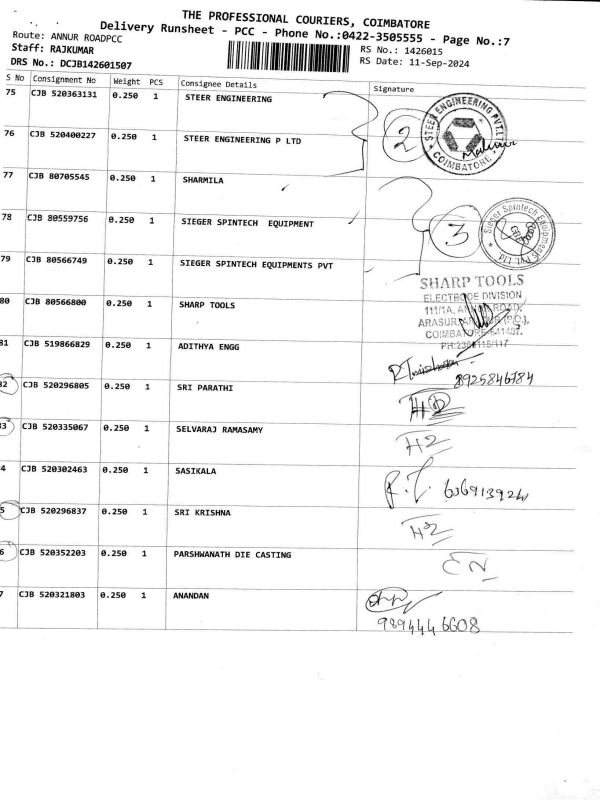 THE PROFESSIONAL COURIERS, COIMBATORE
Delivery Runsheet - PCC - Phone No.:0422-3505555 - Page No.:7
Route: ANNUR ROADPCC
RS No.: 1426015
Staff: RAJKUMAR
RS Date: 11-Sep-2024
DRS No.: DCJB142601507
S No Consignment No Weight PCS Consignee Details Signature
75 CJB 520363131 0.250 1 STEER ENGINEERING
2
STEER ENGINEERING PVT.LTD
COIMBATORE
76 CJB 520400227 0.250 1 STEER ENGINEERING P LTD
77 CJB 80705545 0.250 1 SHARMILA
78 CJB 80559756 0.250 1 SIEGER SPINTECH EQUIPMENT
3
Sieger Spintech Equipments Pvt. Ltd
79 CJB 80566749 0.250 1 SIEGER SPINTECH EQUIPMENTS PVT
SHARP TOOLS
ELECTRODE DIVISION
80 CJB 80566800 0.250 1 SHARP TOOLS
111/1A, ANNUR ROAD,
ARASUR (P.O.),
COIMBATORE-641407.
81 CJB 519866829 0.250 1 ADITHYA ENGG
8925846784
82 CJB 520296805 0.250 1 SRI PARATHI
83 CJB 520335067 0.250 1 SELVARAJ RAMASAMY
4 CJB 520302463 0.250 1 SASIKALA
5 CJB 520296837 0.250 1 SRI KRISHNA
6 CJB 520352203 0.250 1 PARSHWANATH DIE CASTING
7 CJB 520321803 0.250 1 ANANDAN
9894446608